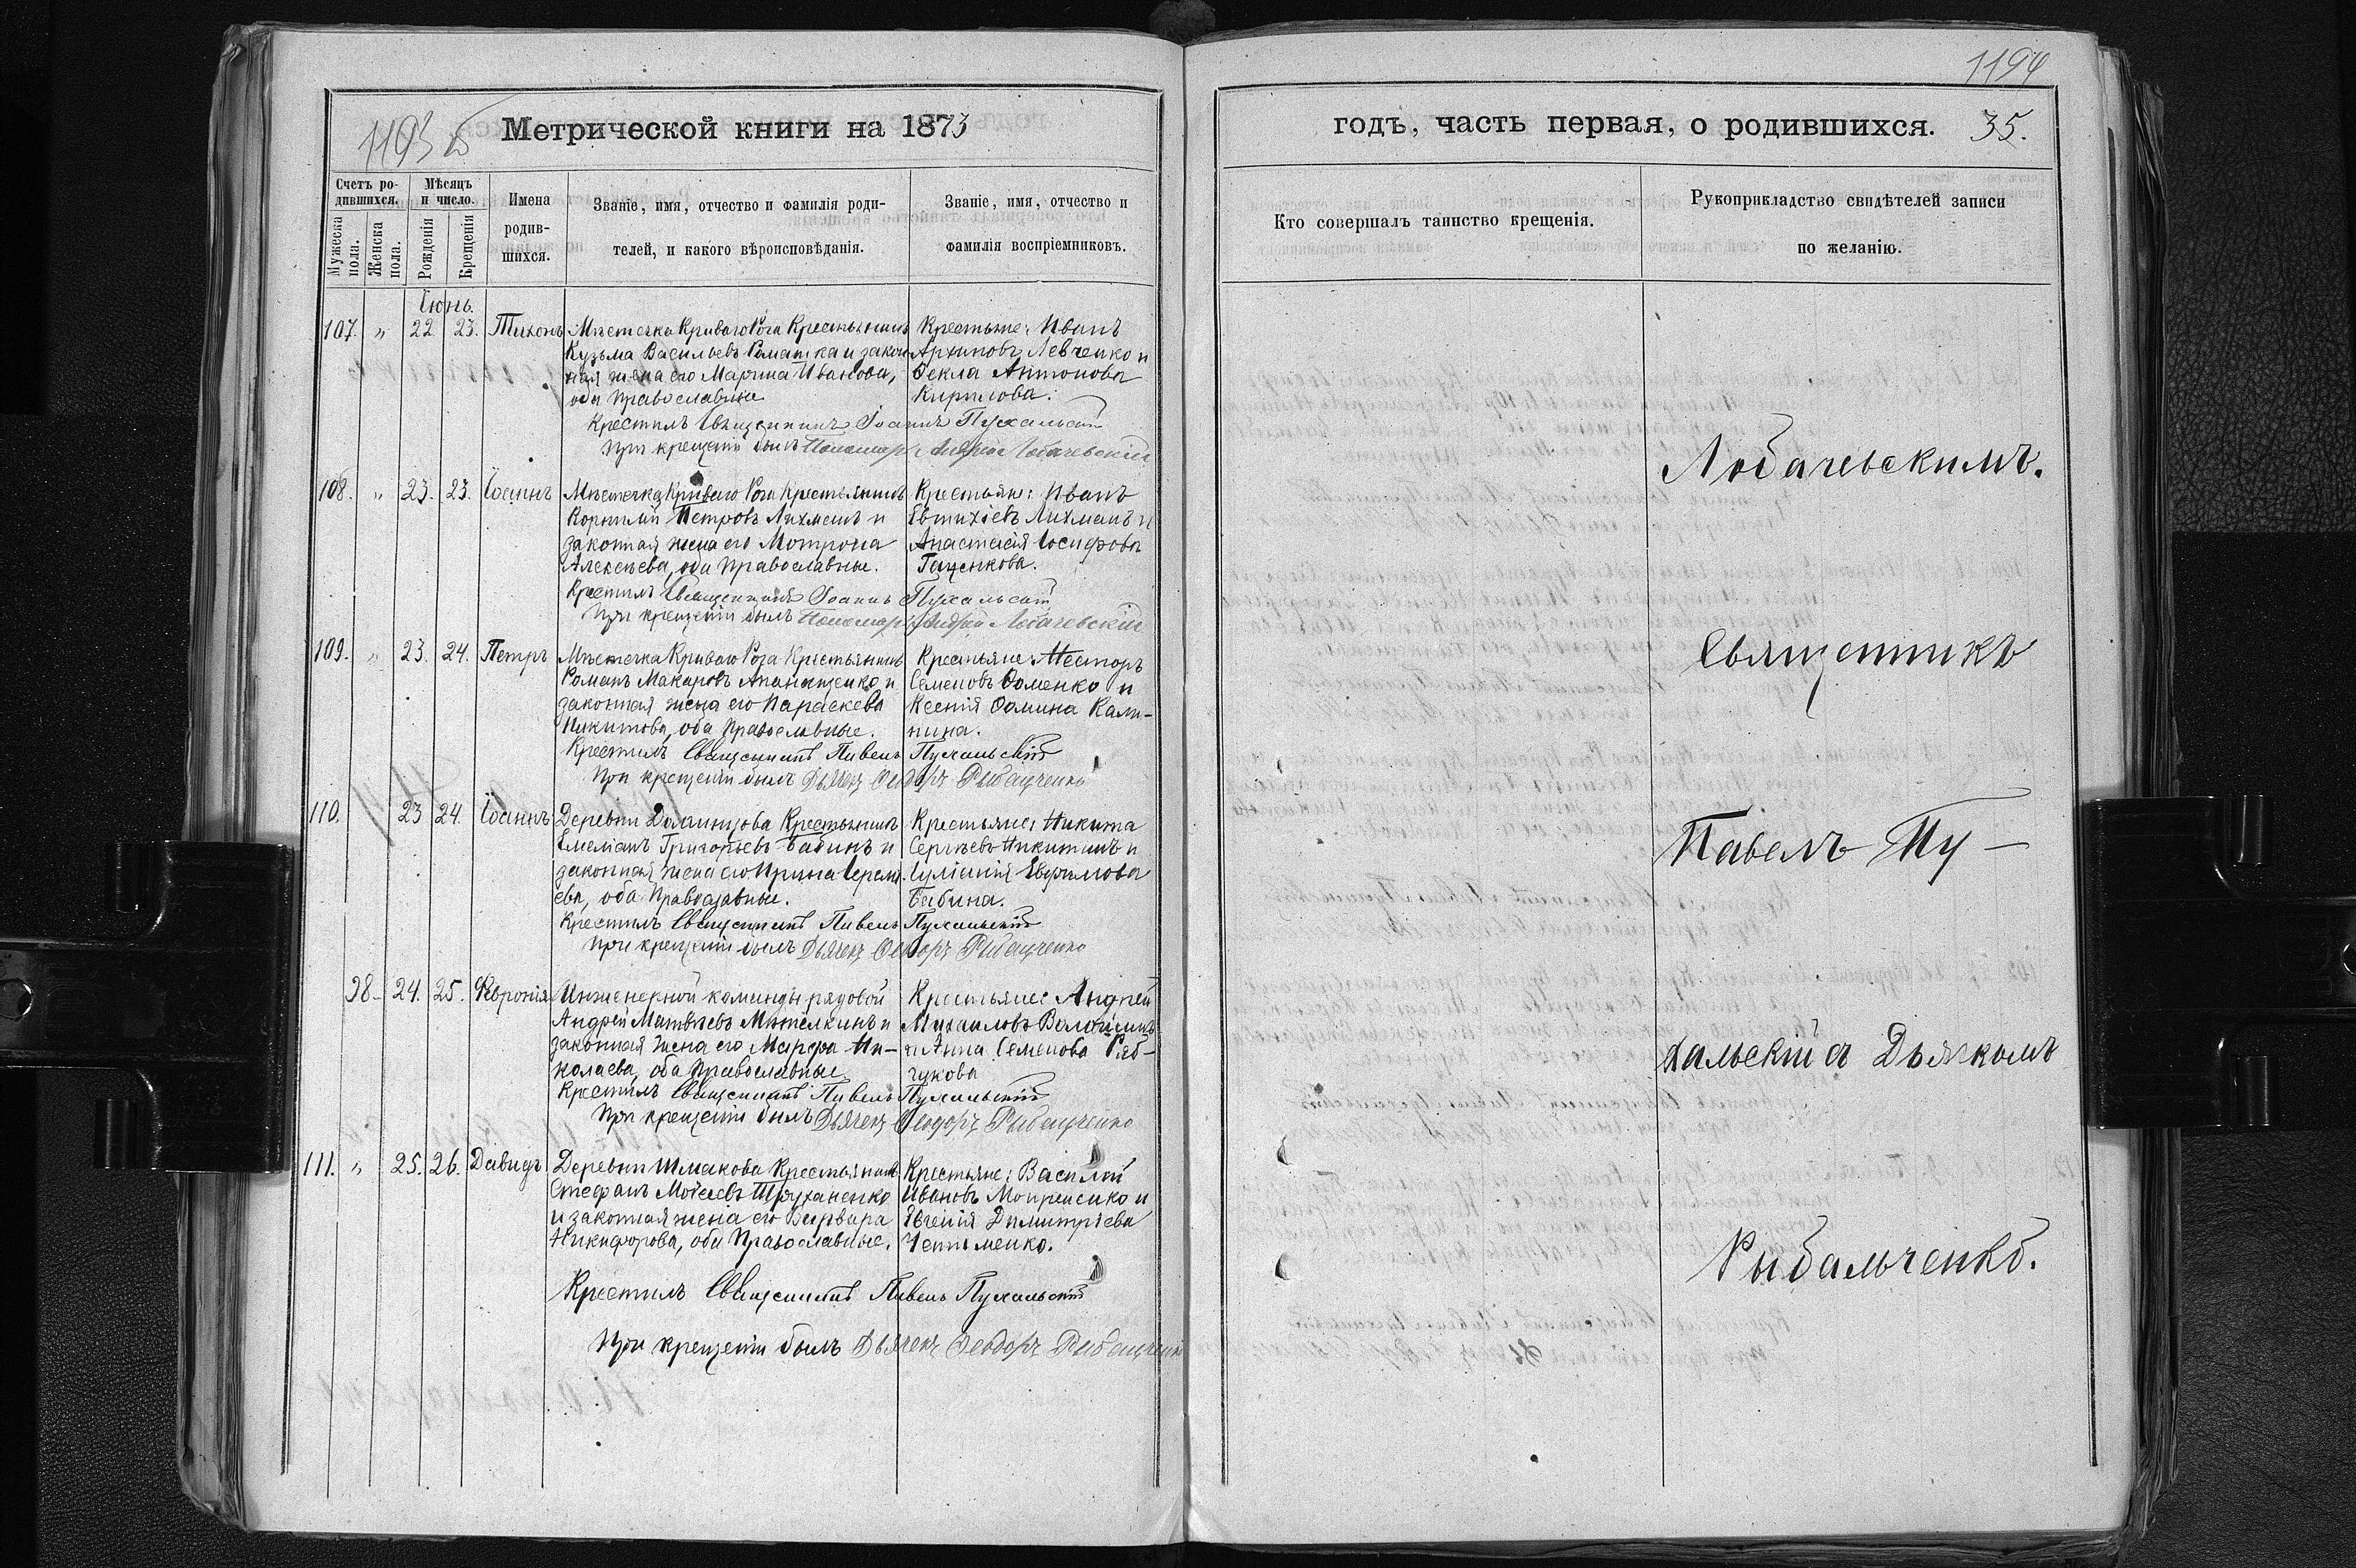 1193 б
Метрической книги на 1873
Счетъ ро-
дившихся.
Мѣсяцъ
и число.
Мужеска
пола.
Женска
пола.
Рожденія
Крещенія
Имена
родив-
шихся.
Званіе, имя, отчество и фамилія роди-
телей, и какого вѣроисповѣданія.
Званіе, имя, отчество и
фамилія воспріемниковъ.
Іюнь.
107. „ 22 23. Тихонъ
Мѣстечка Криваго Рога Крестьянинъ
Кузьма Васильевъ Ромашка и закон
ная жена его Марина Иванова,
оба православные
Крестьяне: Иванъ
Архиповъ Левченко и
Ѳекла Антонова
Кирилова.
Крестилъ Священникъ Іоаннъ Пухальскій
При крещеніи былъ Пономарь Андрей Лобачевскій
108. „ 23. 23. Іоаннъ
Мѣстечка Криваго Рога Крестьянинъ
Корнилій Петровъ Лихманъ и
законная жена его Мотрона
Алексѣева, оба православные.
Крестьяне: Иванъ
Евтихіевъ Лихманъ и
Анастасія Іосифова
Гаценкова.
Крестилъ Священникъ Іоаннъ Пухальскій
При крещеніи былъ Пономарь Андрей Лобачевскій
109. „ 23. 24. Петръ
Мѣстечка Криваго Рога Крестьянинъ
Романъ Макаровъ Апанащенко и
законная жена его Параскева
Никитова, оба православные.
Крестьяне: Несторъ
Семеновъ Ѳоменко и
Ксенія Ѳомина Кали-
нина.
Крестилъ Священникъ Павелъ Пухальскій
При крещеніи былъ Дьячекъ Ѳеодоръ Рыбальченко
110. 23 24. Іоаннъ
Деревни Крестьянинъ
Емеліанъ Григорьевъ Бабинъ и
законная жена его Ирина Іереми
ева, оба православные.
Крестьяне: Никита
Сергѣевъ Никитинъ и
Іуліанія Евфимова
Бабина.
Крестилъ Священникъ Павелъ Пухальскій
При крещеніи былъ Дьячекъ Ѳеодоръ Рыбальченко
98 24. 25. Февронія
Инженерной команды рядовой
Андрей Матвѣевъ и
законная жена его Марфа Ни-
колаева, оба православные
Крестьяне: Андрей
Михаиловъ
и Анна Семенова Ряб-
чукова
Крестилъ Священникъ Павелъ Пухальскій
При крещеніи былъ Дьячекъ Ѳеодоръ Рыбальченко
111. „ 25. 26. Давидъ
Деревни Шмакова Крестьянинъ
Стефанъ Моѵсеевъ
и законная жена его Варвара
Никифорова, оба Православные.
Крестьяне: Василій
Ивановъ и
Евгенія Димитріева
Крестилъ Священникъ Павелъ Пухальскій
При крещеніи былъ Дьячекъ Ѳеодоръ Рыбальченко
1194
годъ, часть первая, о родившихся. 35.
Кто совершалъ таинство крещенія.
Рукоприкладство свидѣтелей записи
по желанію.
Лобачевскимъ.
Священникъ
Павелъ Пу-
хальскій съ Дьячкомъ
Рыбальченко.